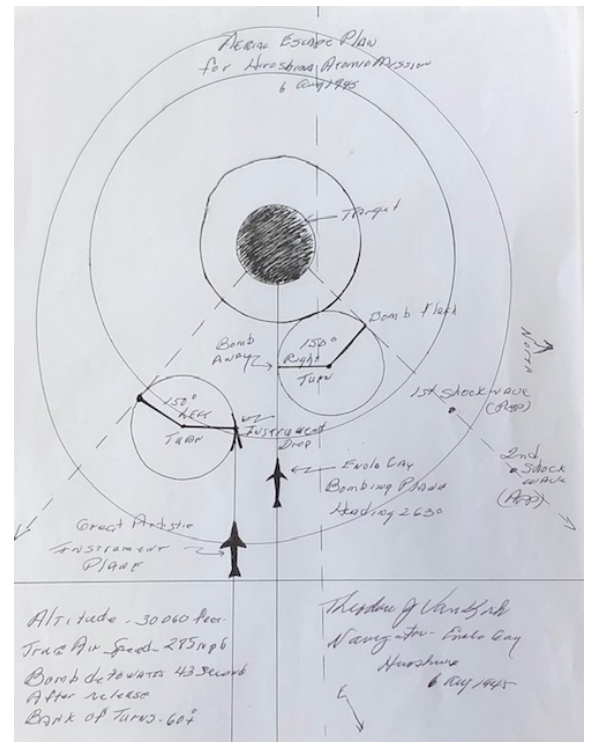 Aerial Escape Plan
for Hiroshima Atomic Mission
6 Aug 1945
Target
Bomb Flash
Bomb
Away
150°
Right
Turn
North
1st Shock wave
(App)
2nd
Shock
wave
(App)
150°
Left
Turn
Instrument
Drop
Enola Gay
Bombing Plane
Heading 263°
Great Artiste
Instrument
Plane
Altitude - 30060 feet
True Air Speed - 295 mph
Bomb detonates 43 seconds
After release
Bank of Turns - 60°
Theodore J VanKirk
Navigator - Enola Gay
Hiroshima
6 Aug 1945
E